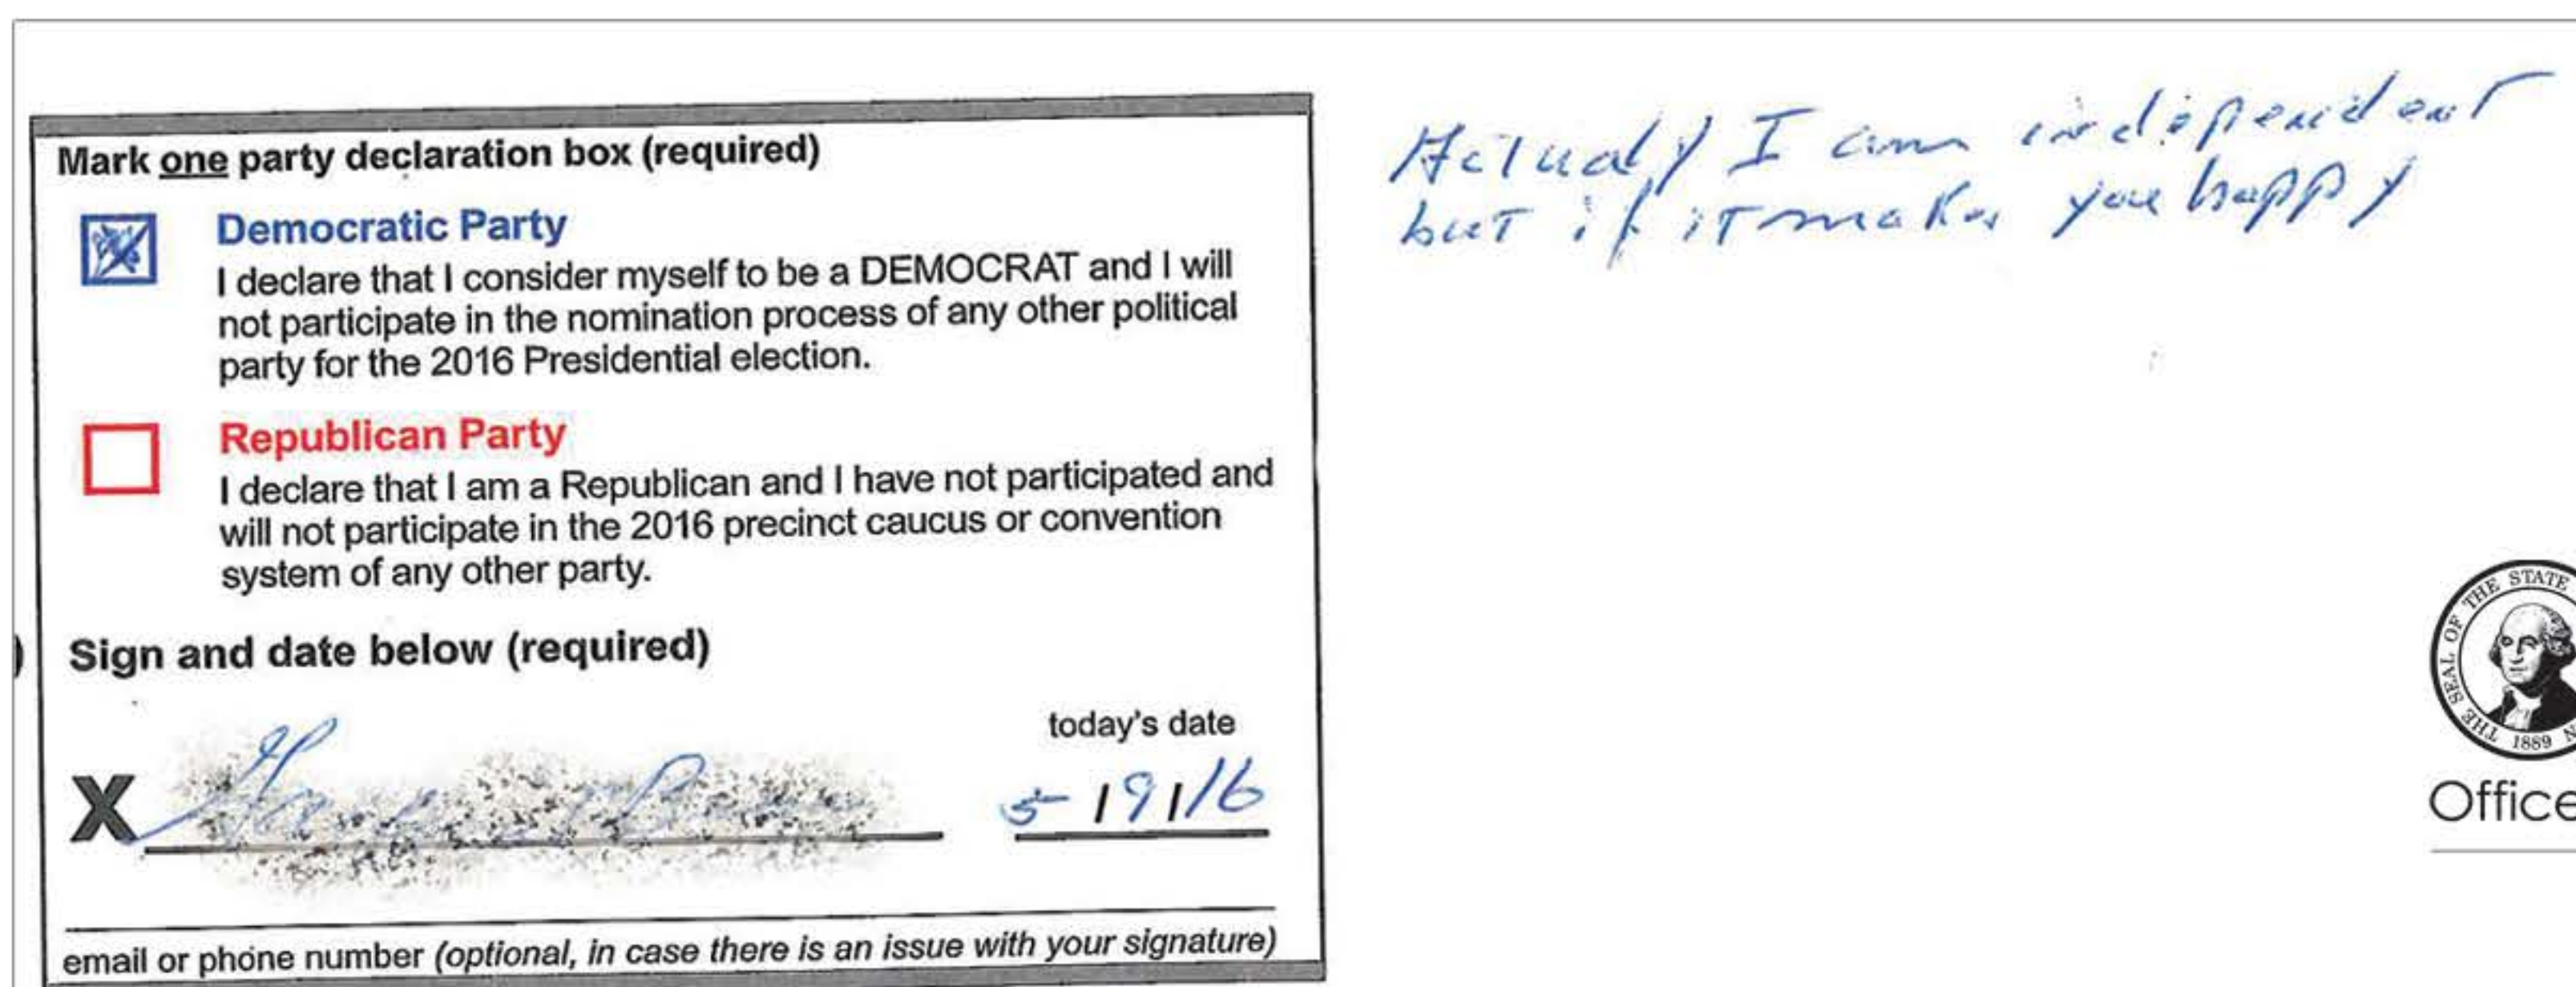 Mark one party declaration box (required)
Democratic Party
I declare that I consider myself to be a DEMOCRAT and I will
not participate in the nomination process of any other political
party for the 2016 Presidential election.
Republican Party
I declare that I am a Republican and I have not participated and
will not participate in the 2016 precinct caucus or convention
system of any other party.
Sign and date below (required)
today's date
X
5/9/16
email or phone number (optional, in case there is an issue with your signature)
Actualy I am independent
but if it makes you happy
THE SEAL OF THE STATE
1889
Office